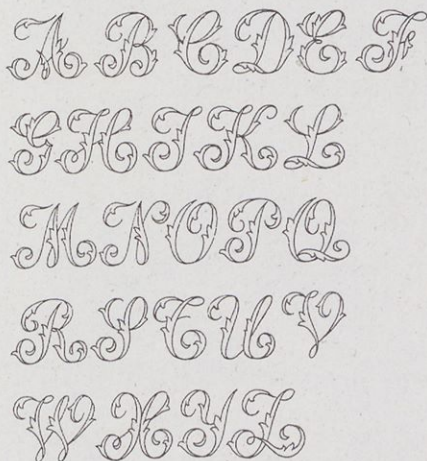 A B C D E F
G H I K L
M N O P Q
R S T U V
W X Y Z